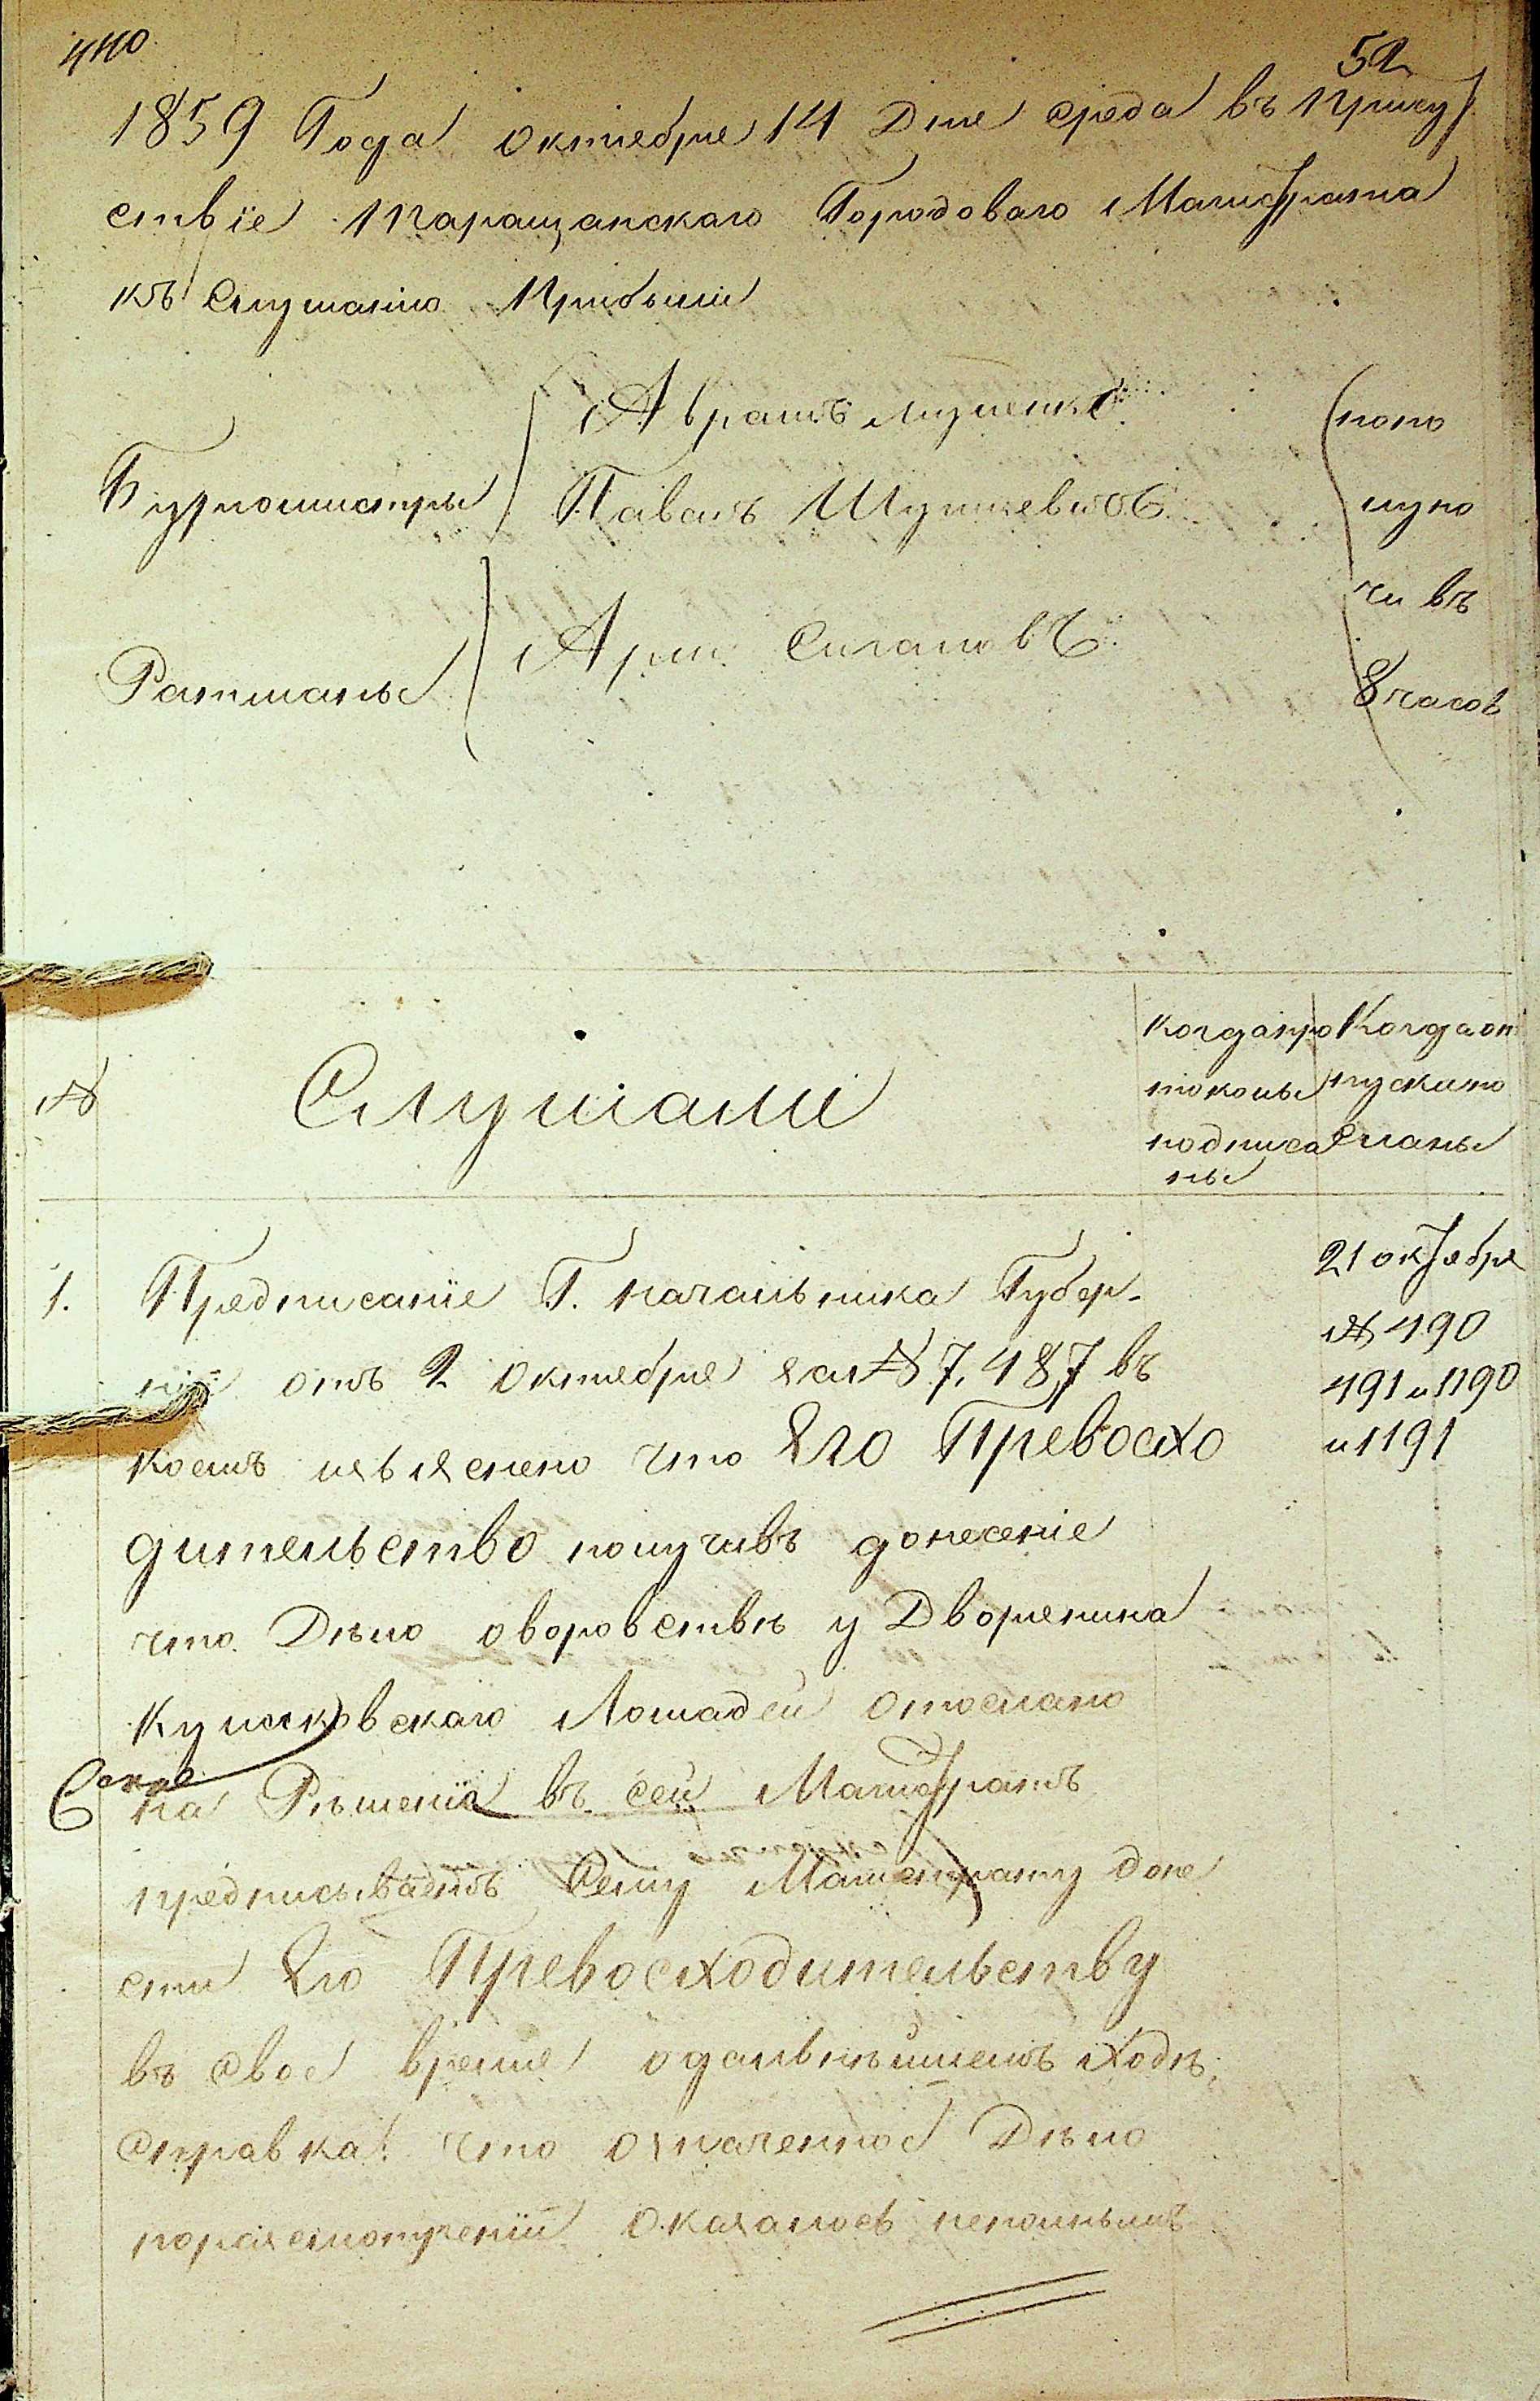 52
1859 Года Октебря 14 Дне среда въ Прису
ствіе Таращанскаго Городоваго Магистрата
къ Слушанію Прибыли
Бургомистры
Павалъ
Ратманы
попо
луно
чи въ
8 часов
№
Слушали
Когда про
токолы
подписа
ны
Когда от
пуски по
Сланы
1. Предписаніе Г. Начальника Губер-
ніи отъ 2 Октебря за № 7,487 въ
коемъ изъяснено что Его Превосхо
дительство получивъ донесеніе
что Дѣло оворовствѣ у Дворенина
Лошадей отослано
на Рѣшенія въ сей Магистратъ
предписываетъ Сему Магистрату доне
сти Его Превосходительству
въ свое време одальнѣйшемъ ходѣ;
справка: что означенное Дѣло
поразсмотреніи оказалось неполнымъ
21 октебря
№ 490
491 и 1190
и 1191